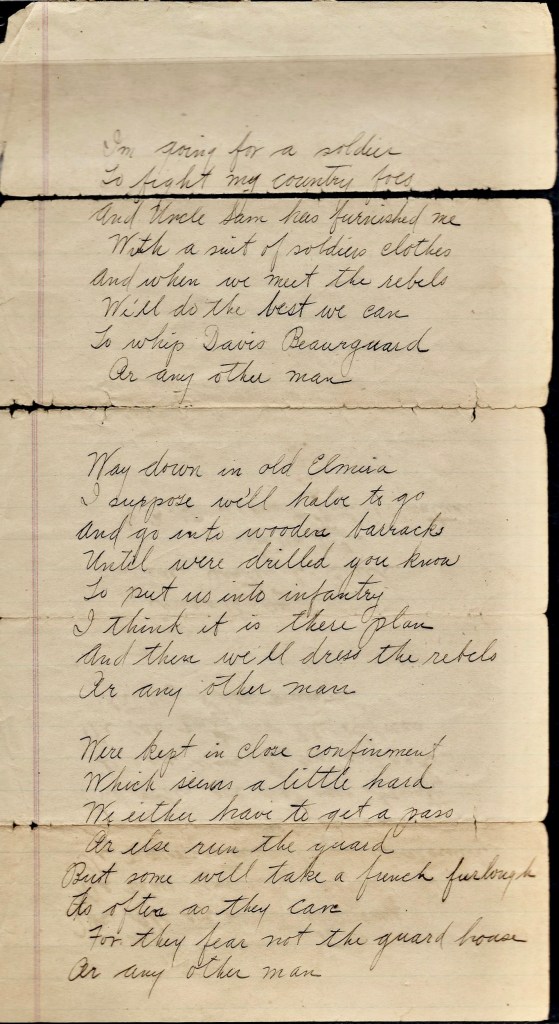 I'm going for a soldier
To fight my country foes
And Uncle Sam has furnished me
With a suit of soldiers clothes
And when we meet the rebels
We'll do the best we can
To whip Davis Beaurguard
Or any other man
Way down in old Elmira
I suppose we'll halve to go
And go into wooden barracks
Until were drilled you know
To put us into infantry
I think it is there plan
And then we'll dress the rebels
Or any other man
Were kept in close confinment
Which seems a little hard
We either have to get a pass
Or else run the guard
But some will take a french furlough
As often as they can
For they fear not the guard house
Or any other man